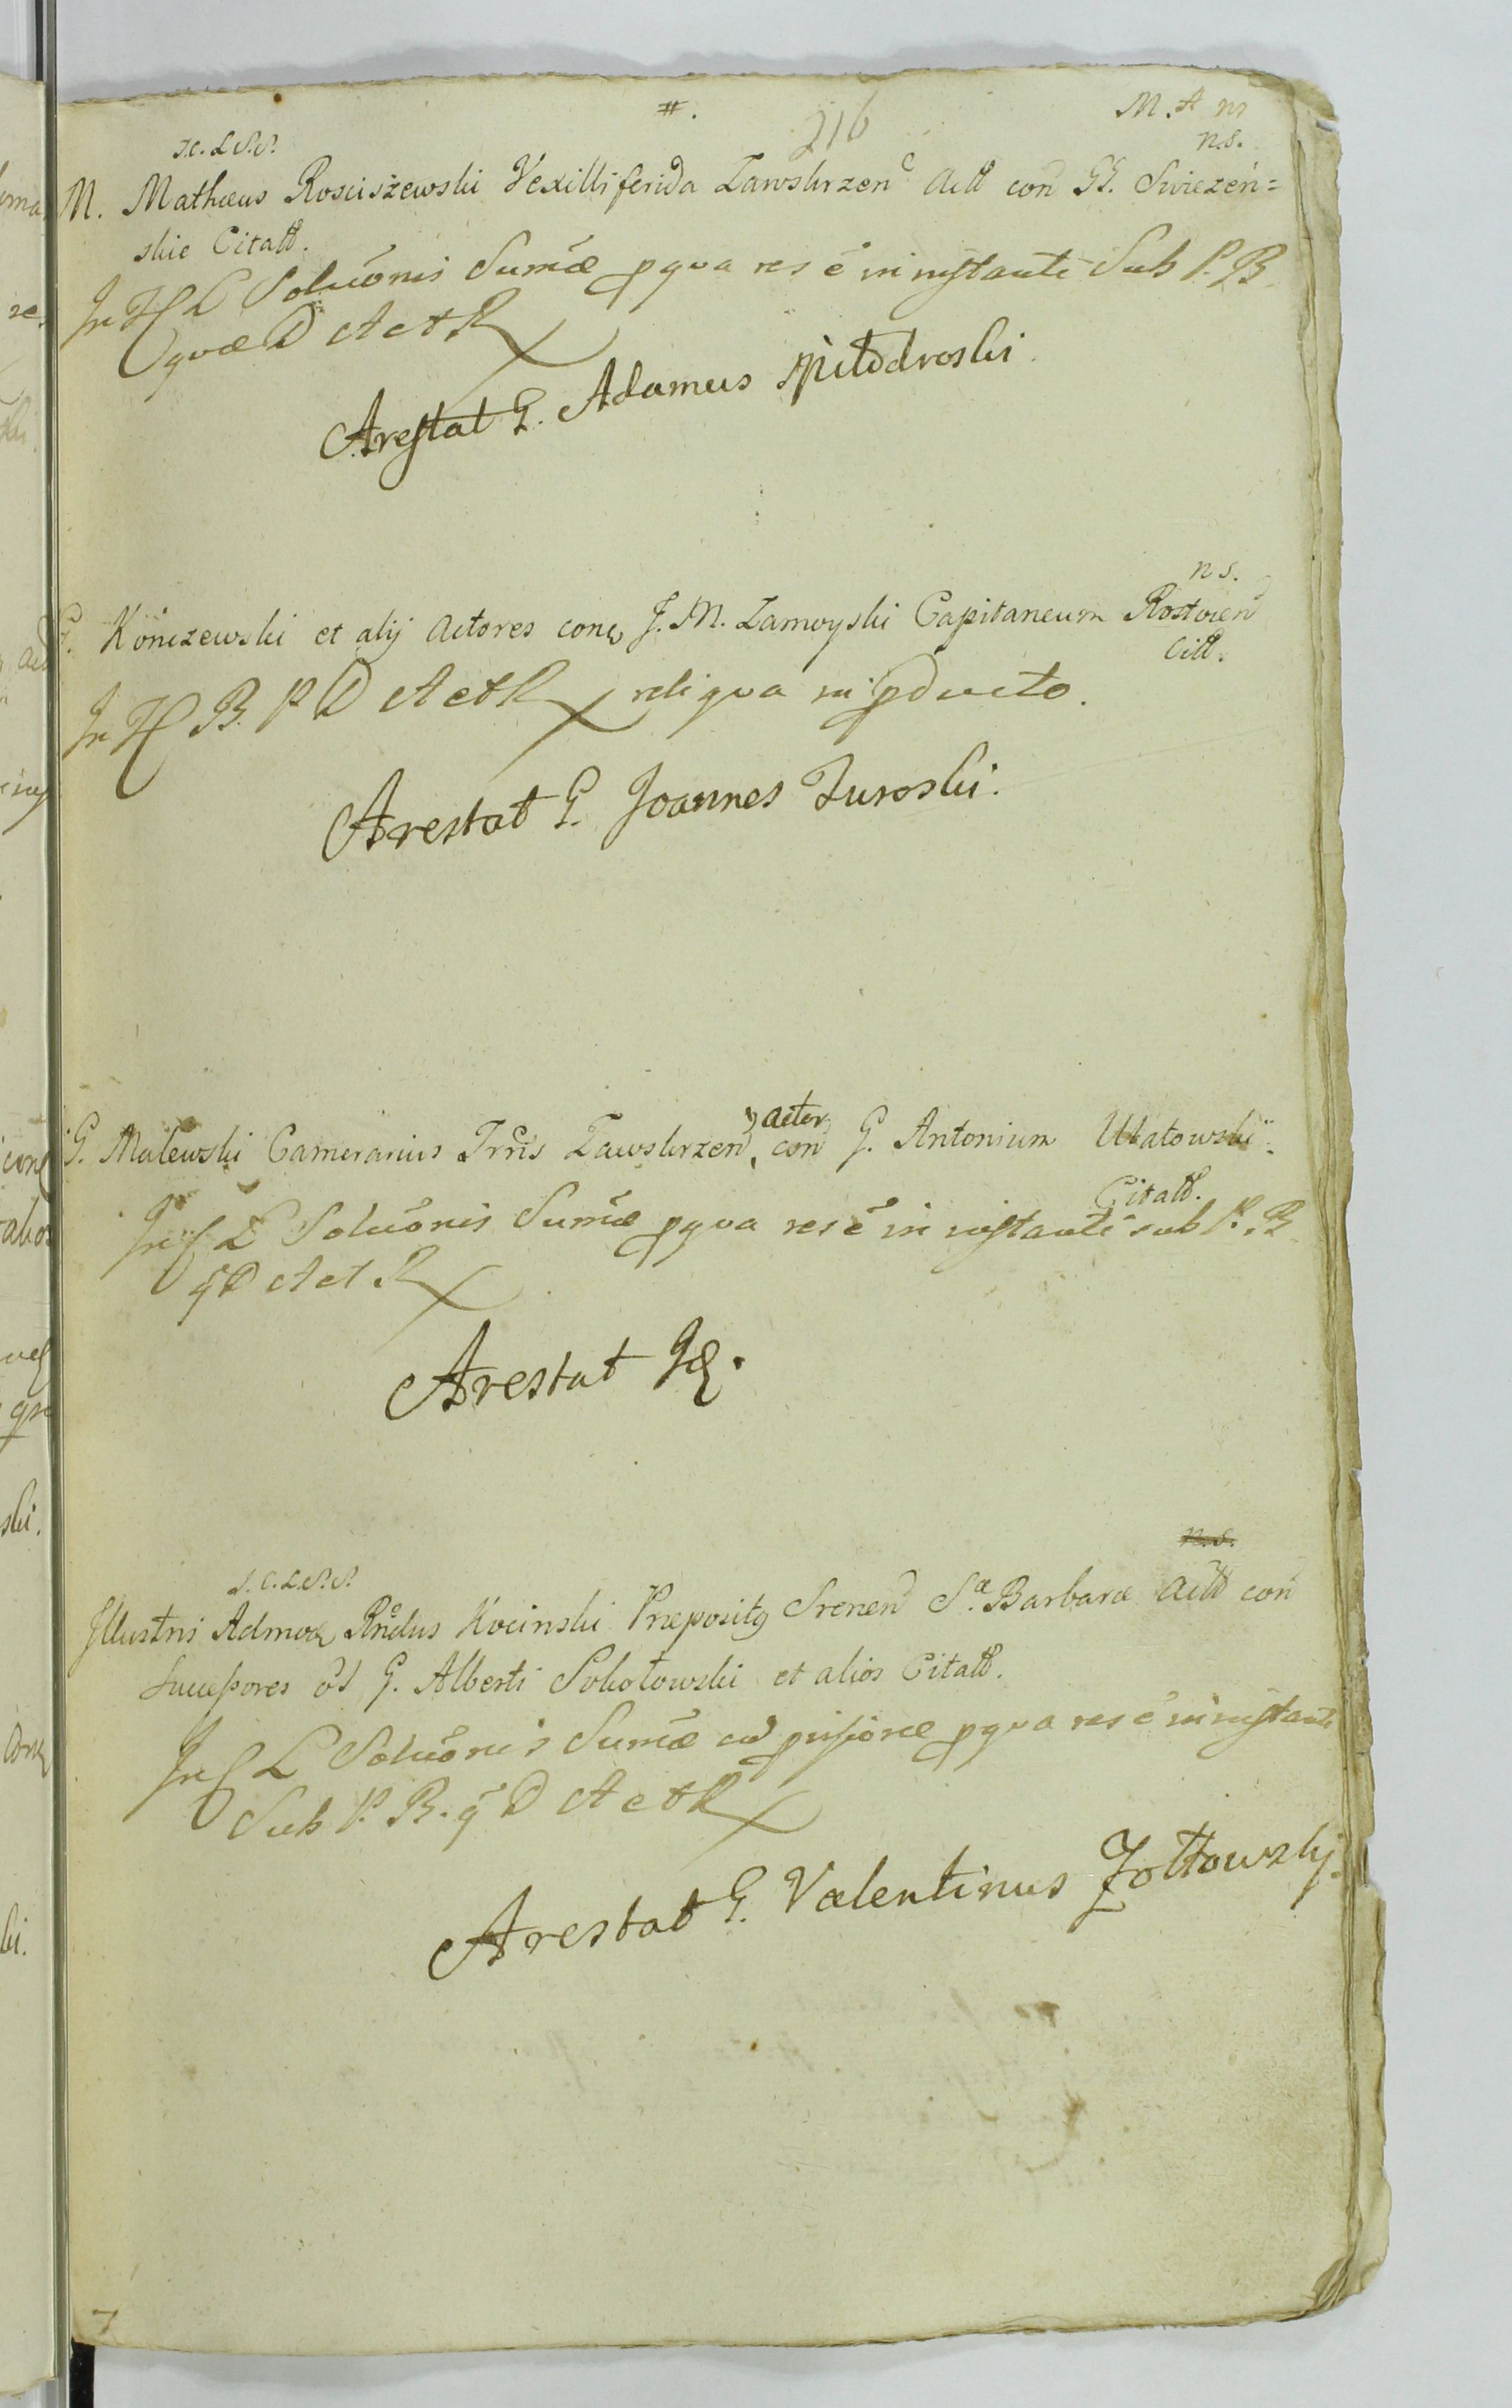 #.
216
M. A m
n.s.
J.C. L.S.S.
M. Mathæus Rosciszewski Vexilliferida Zawskrzen Actt con GG. Swiezen=
skie Citatt.
In H L Soluonis Sumæ p qua res e in instanti Sub P. B
quæ D Act R
Arestat G. Adamus
n s.
G. Konczewski et alij Actores con J. M. Zamoyski Capitaneum Rostoien
Citt.
In H B. P D Act R reliqua in pducto.
Arestat G. Joannes Zuroski.
actor
G. Malewski Camerarius Trris Zawskrzen con G. Antonium Ulatowski
Citatt.
In L Soluonis Sumæ p qua res e in instanti sub P. B
q D Act R
Arestat
n.s.
J. C. L.S.S.
Illustris Admo Rndus Kocinski Præposity Srenen S. Barbaræ Actt con
Sucessores G. Alberti Sokołowski et alios Citatt.
In L Soluonis Sumæ p qua res e in instanti
Sub P. B. q D Act R
Arestat G. Valentinus Zołtowsky.